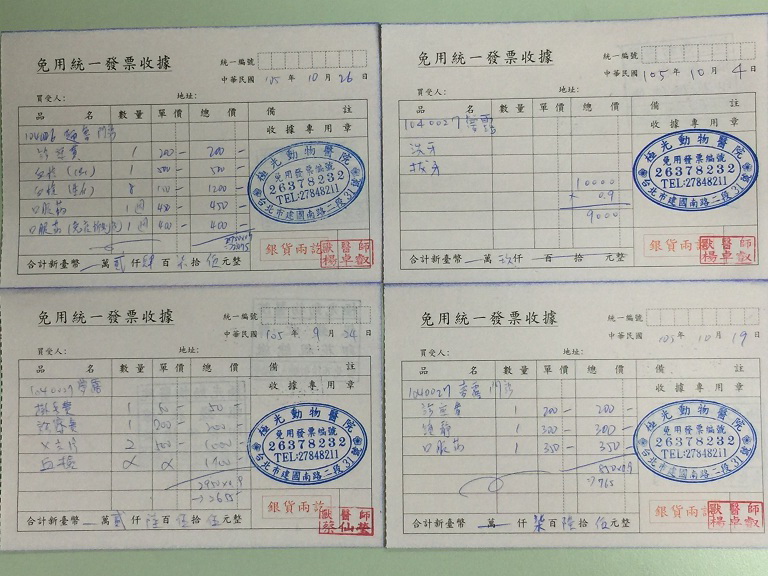 免用統一發票收據
統一編號
中華民國 105 年 10 月 26 日
買受人： 地址：
品 名 數量 單價 總價 備 註
收據專用章
診察費 1 200- 200-
1 500- 500-
口服藥 1週 450- 450-
1週 400- 400-
極光動物醫院
免用發票編號
26378232
TEL:27848211
台北市建國南路二段31號
銀貨兩訖
獸醫師
楊卓叡
合計新臺幣 一萬貳仟肆百柒拾伍元整
免用統一發票收據
統一編號
中華民國 105 年 10 月 4 日
買受人： 地址：
品 名 數量 單價 總價 備 註
收據專用章
1040027
洗牙
拔牙
10000
× 0.9
9000
極光動物醫院
免用發票編號
26378232
TEL:27848211
台北市建國南路二段31號
銀貨兩訖
獸醫師
楊卓叡
合計新臺幣 一萬玖仟 百 拾 元整
免用統一發票收據
統一編號
中華民國 105 年 9 月 24 日
買受人： 地址：
品 名 數量 單價 總價 備 註
收據專用章
1040027
1 50 50-
診察費 1 200 200-
X光片 2 500- 1000-
血檢
2950×0.9
→2655
極光動物醫院
免用發票編號
26378232
TEL:27848211
台北市建國南路二段31號
銀貨兩訖
獸醫師
蔡仙瑩
合計新臺幣 一萬貳仟陸百伍拾伍元整
免用統一發票收據
統一編號
中華民國 105 年 10 月 19 日
買受人： 地址：
品 名 數量 單價 總價 備 註
收據專用章
1040027
診察費 1 200- 200-
1 300- 300-
口服藥 1 350- 350-
850×0.9
→765
極光動物醫院
免用發票編號
26378232
TEL:27848211
台北市建國南路二段31號
銀貨兩訖
獸醫師
楊卓叡
合計新臺幣 一萬 仟柒百陸拾伍元整